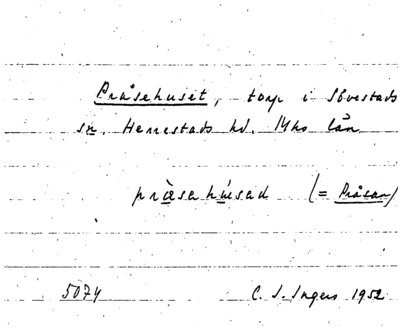 Pråsehuset, torp i Sövestads
sn. Herrestads hd. Mhs län
pråsahúsad (= Pråsan)
5074 C. I. Ingers 1952